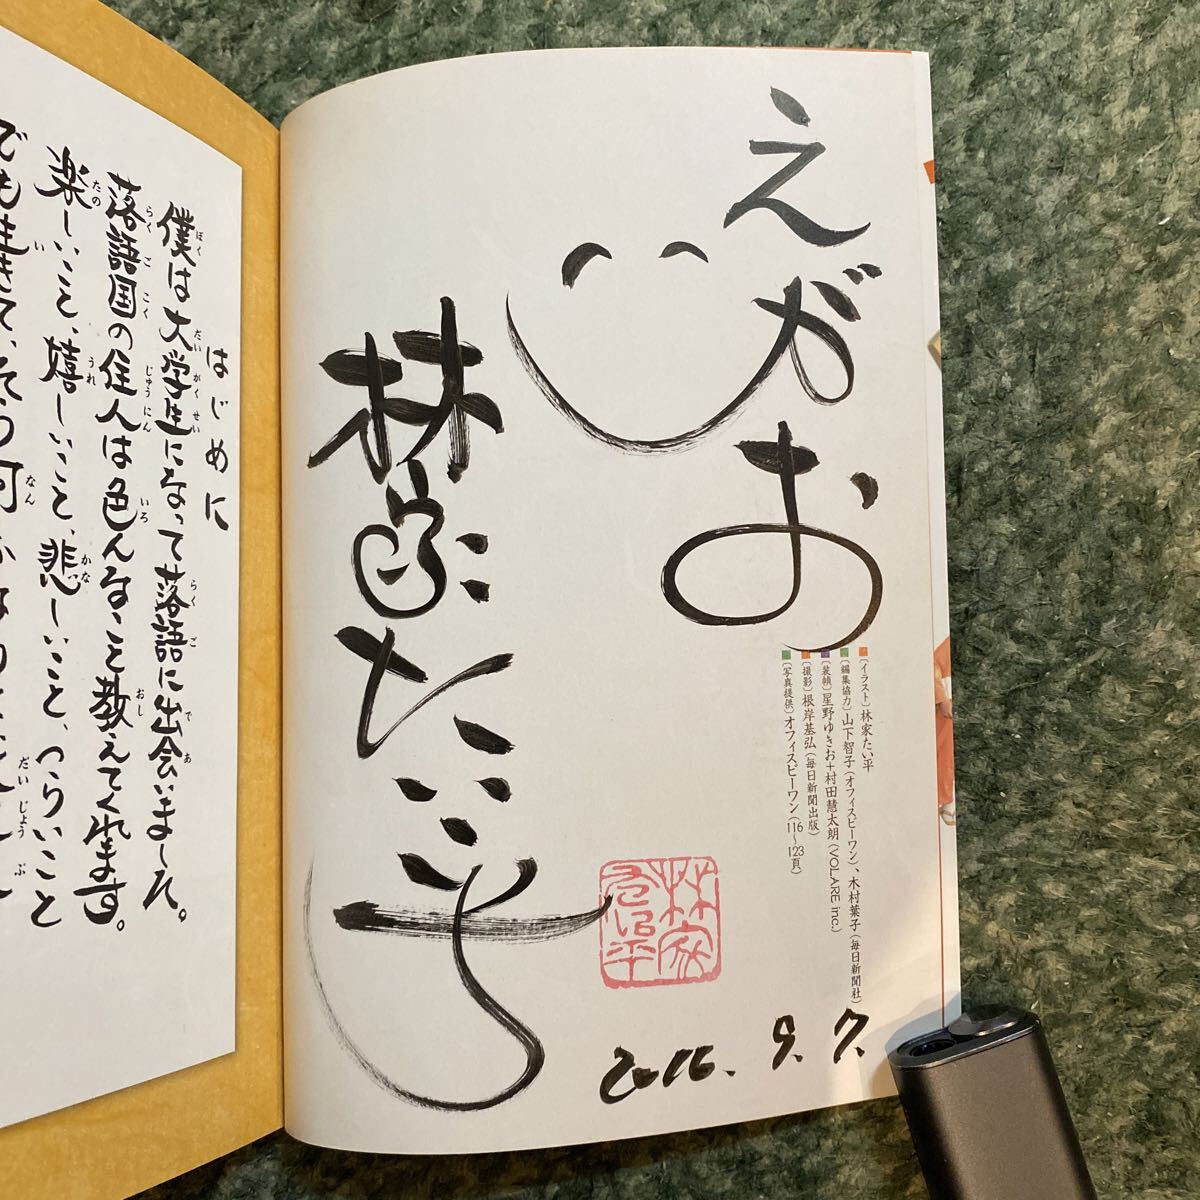 えがお
林家たい平
2016.9.7.
林家
たい平
[イラスト]林家たい平
[編集協力]山下智子(オフィスビーワン)、木村葉子(毎日新聞社)
[装幀]星野ゆきお+村田慧太朗(VOLARE inc.)
[撮影]根岸基弘(毎日新聞出版)
[写真提供]オフィスビーワン(116〜123頁)
はじめに
僕は大学生になって落語に出会いました。
落語国の住人は色んなこと教えてくれます。
楽しいこと、嬉しいこと、悲しいこと、つらいこと
でも生きて、